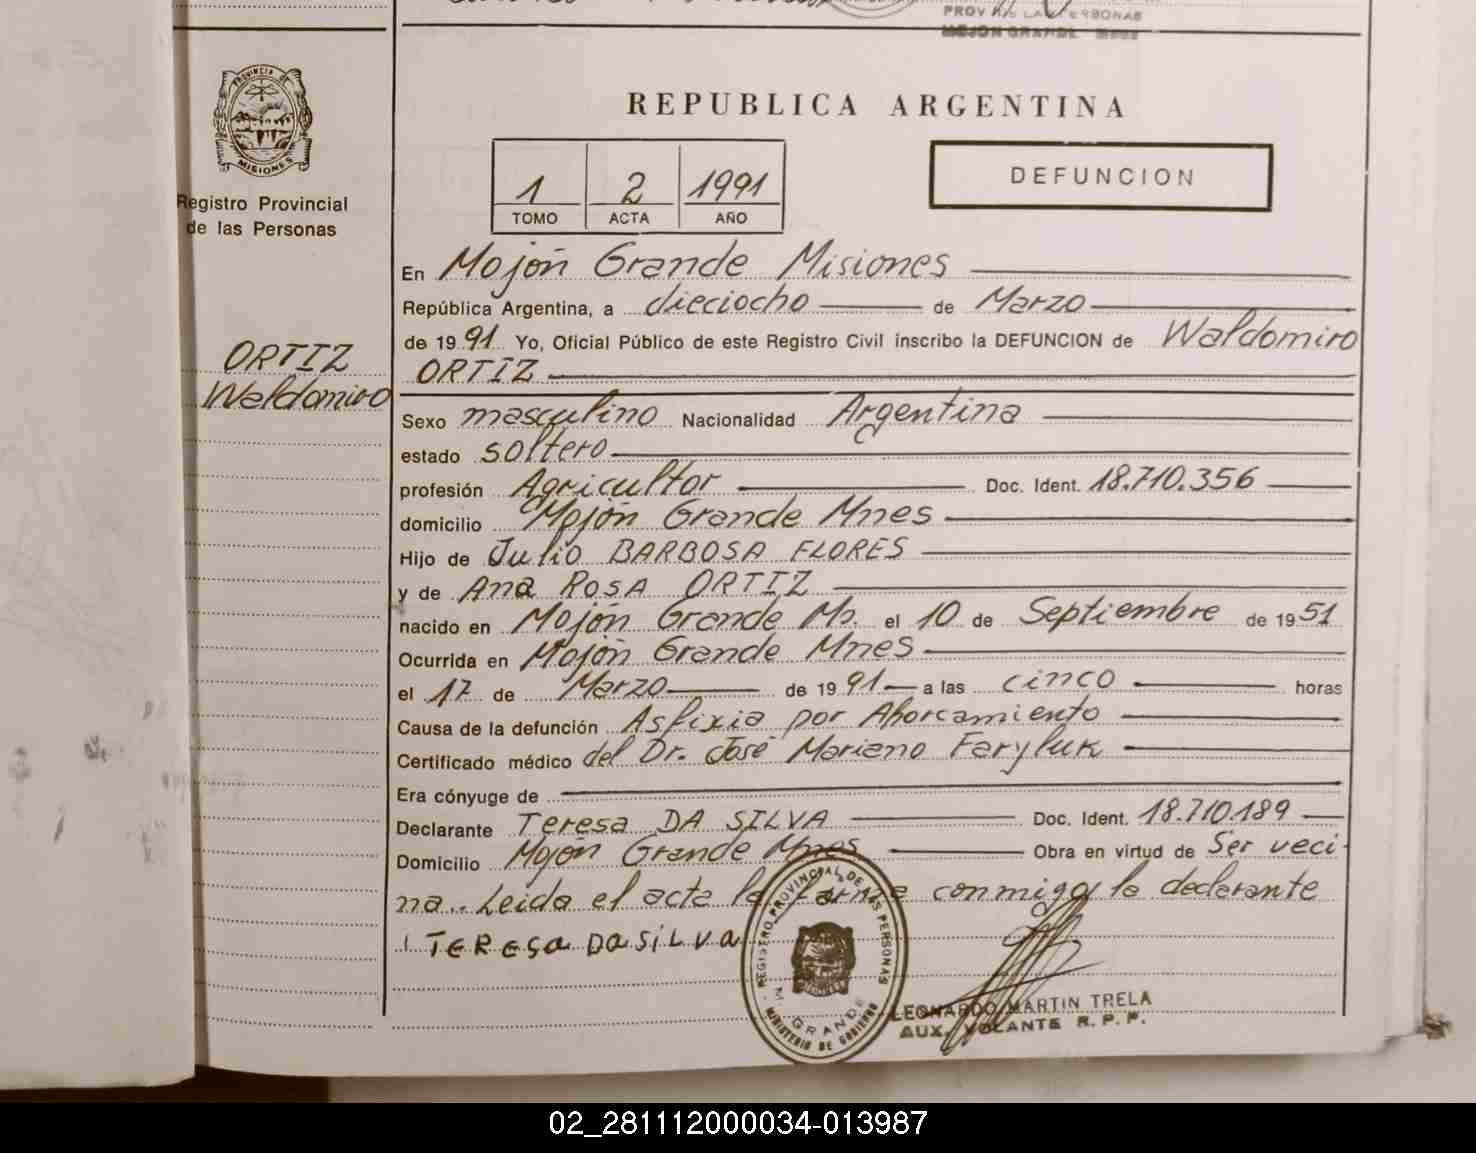 PROV DE LAS PERSONAS
MOJON GRANDE
PROVINCIA DE
MISIONES
Registro Provincial
de las Personas
ORTIZ
Waldomiro
REPUBLICA ARGENTINA
1 2 1991
TOMO ACTA AÑO
DEFUNCION
En Mojón Grande Misiones
República Argentina, a dieciocho de Marzo
de 1991 Yo, Oficial Público de este Registro Civil inscribo la DEFUNCION de Waldomiro
ORTIZ
Sexo masculino Nacionalidad Argentina
estado soltero
profesión Agricultor Doc. Ident. 18.710.356
domicilio Mojón Grande Mnes
Hijo de Julio BARBOSA FLORES
y de Ana ROSA ORTIZ
nacido en Mojón Grande Ms. el 10 de Septiembre de 1951
Ocurrida en Mojón Grande Mnes
el 17 de Marzo de 1991 a las cinco horas
Causa de la defunción Asfixia por Ahorcamiento
Certificado médico del Dr. José Mariano Faryluk
Era cónyuge de
Declarante Teresa DA SILVA Doc. Ident. 18.710.189
Domicilio Mojón Grande Mnes Obra en virtud de Ser veci-
na.. Leída el acta la Farma conmigo la declarante
TERESA DA SILVA
REGISTRO PROVINCIAL DE LAS PERSONAS
M. GRANDE
MINISTERIO DE GOBIERNO
LEONARDO MARTIN TRELA
AUX. VOLANTE R. P. P.
02_281112000034-013987